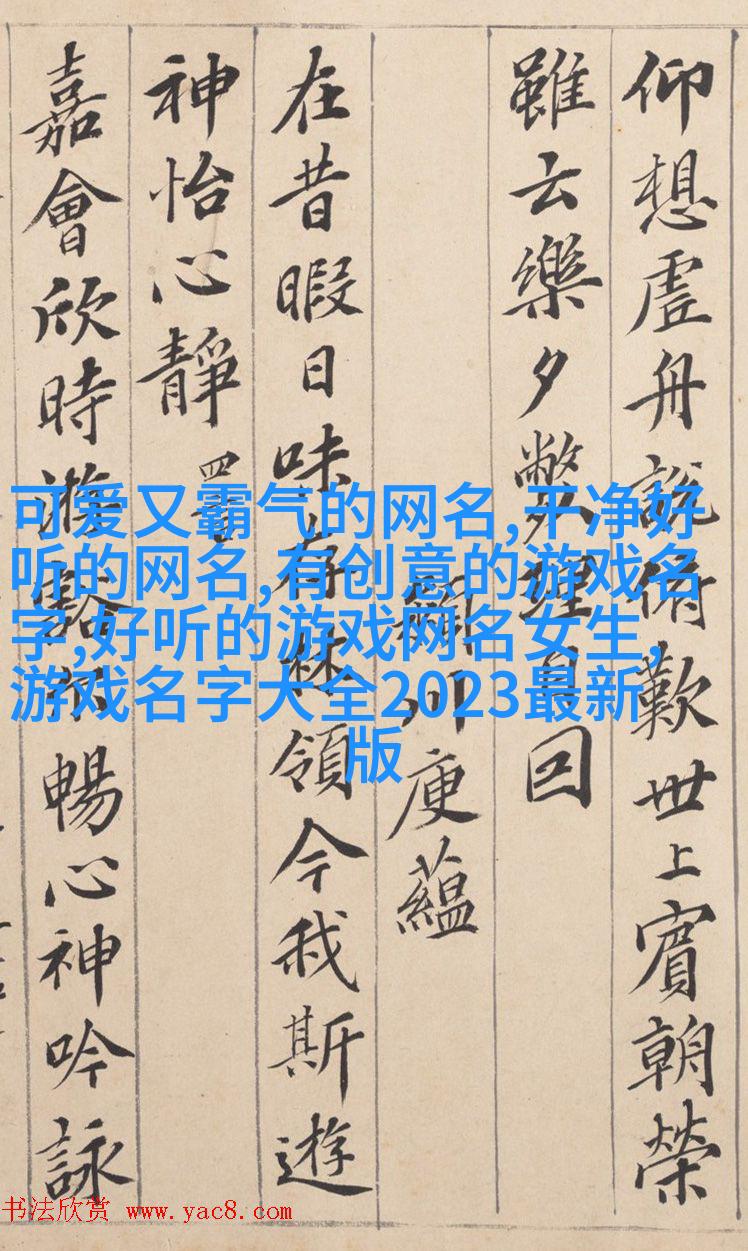 仰想虛舟說俯歎世上賓朝榮
雖云樂夕弊理自回
潁川庾蘊
在昔暇日味存林領今我斯遊
神怡心靜 四
嘉會欣時遊豁爾暢心神吟詠
可爱又霸气的网名,干净好
听的网名,有创意的游戏名
字,好听的游戏网名女生,
游戏名字大全2023最新
版
书法欣赏 www.yac8.com